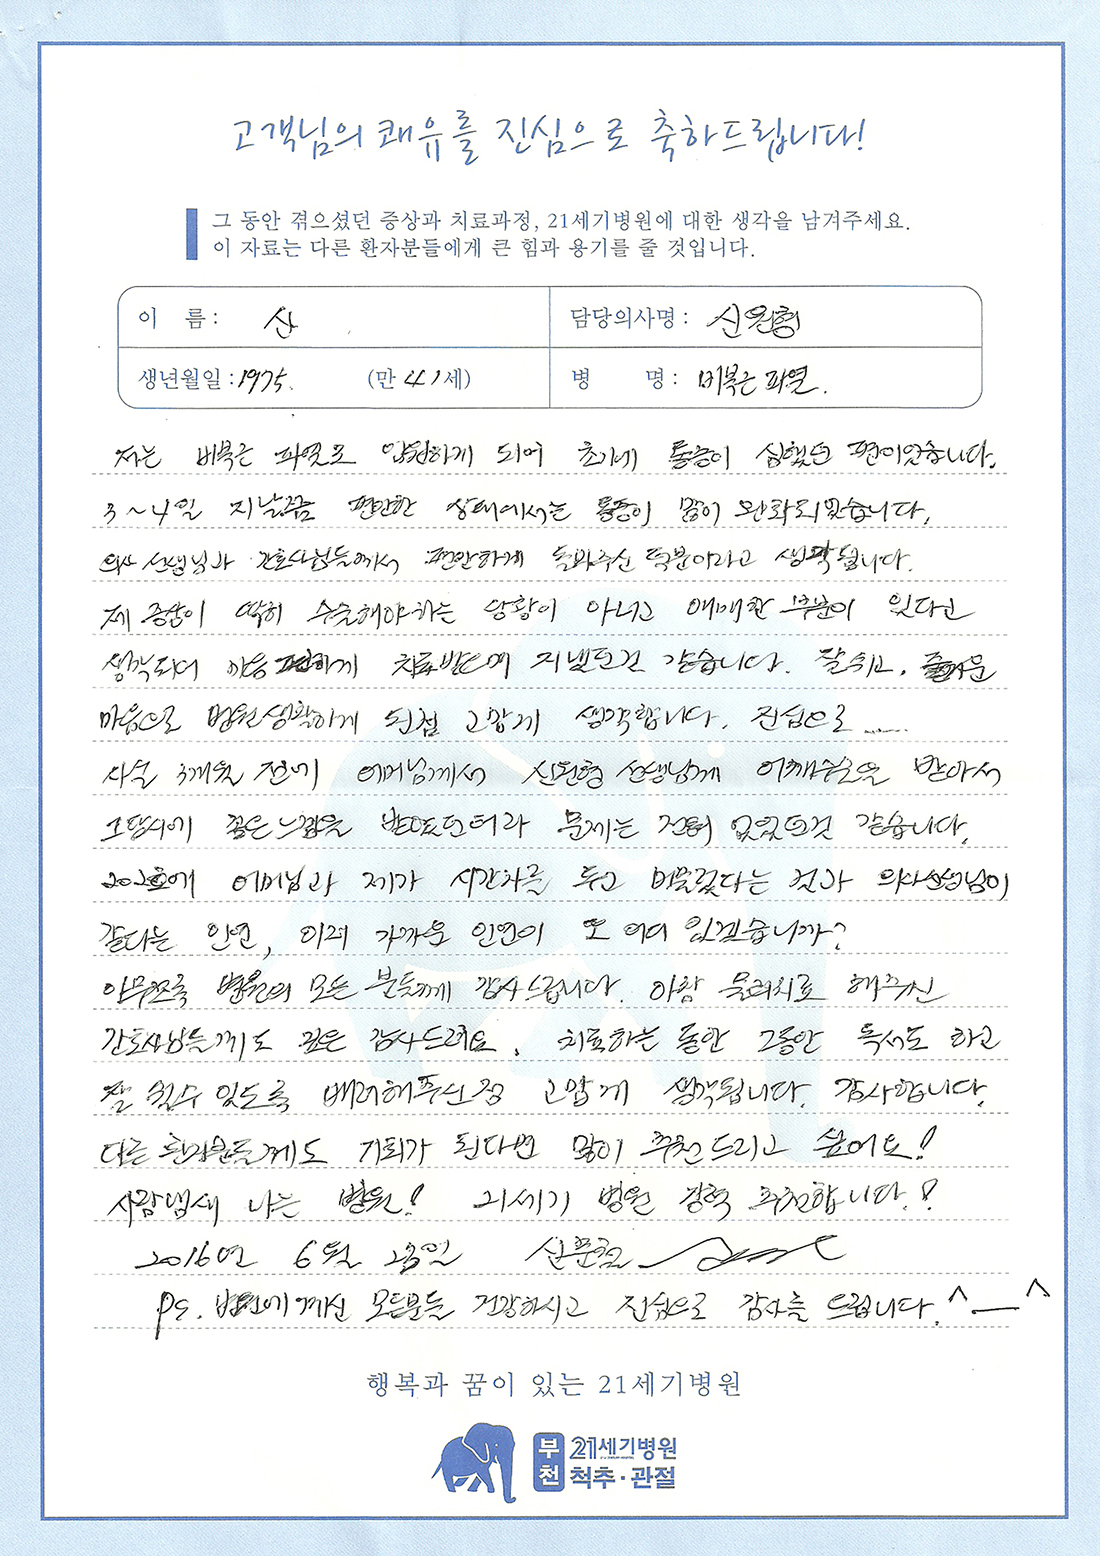 고객님의 쾌유를 진심으로 축하드립니다!
그 동안 겪으셨던 증상과 치료과정, 21세기병원에 대한 생각을 남겨주세요.
이 자료는 다른 환자분들에게 큰 힘과 용기를 줄 것입니다.
이 름 : 산
담당의사명 : 신원형
생년월일 : 1975. (만 41세)
병 명 : 비복근 파열.
저는 비복근 파열로 입원하게 되어 초기에 통증이 심했던 편이었습니다.
3~4일 지날쯤 편안한 상태에서는 통증이 많이 완화되었습니다.
의사 선생님과 간호사님들께서 편안하게 돌봐주신 덕분이라고 생각됩니다.
제 증상이 딱히 수술해야하는 상황이 아니고 애매한 부분이 있다고
생각되어 마음 편하게 치료받으며 지냈던것 같습니다. 잘 쉬고, 즐거운
마음으로 병원생활하게 되점 고맙게 생각합니다. 진심으로......
사실 3개월 전에 어머님께서 신원형 선생님께 어깨수술을 받아서
그당시에 좋은 느낌을 받았던터라 문제는 전혀 없었던것 같습니다.
202호에 어머님과 제가 시간차를 두고 머물렀다는 것과 의사선생님이
같다는 인연, 이리 가까운 인연이 또 어디 있겠습니까?
아무쪼록 병원의 모든 분들께 감사드립니다. 아참 물리치료 해주신
간호사님들께도 깊은 감사드려요. 치료하는 동안 그동안 독서도 하고
잘 쉴수 있도록 배려해주신점 고맙게 생각됩니다. 감사합니다.
다른 환자분들께도 기회가 된다면 많이 추천드리고 싶어요!
사람냄새 나는 병원! 21세기 병원 강력 추천합니다.!
2016년 6월 28일
ps. 병원에 계신 모든분들 건강하시고 진심으로 감사를 드립니다.^—^
행복과 꿈이 있는 21세기병원
부천 21세기병원
척추·관절